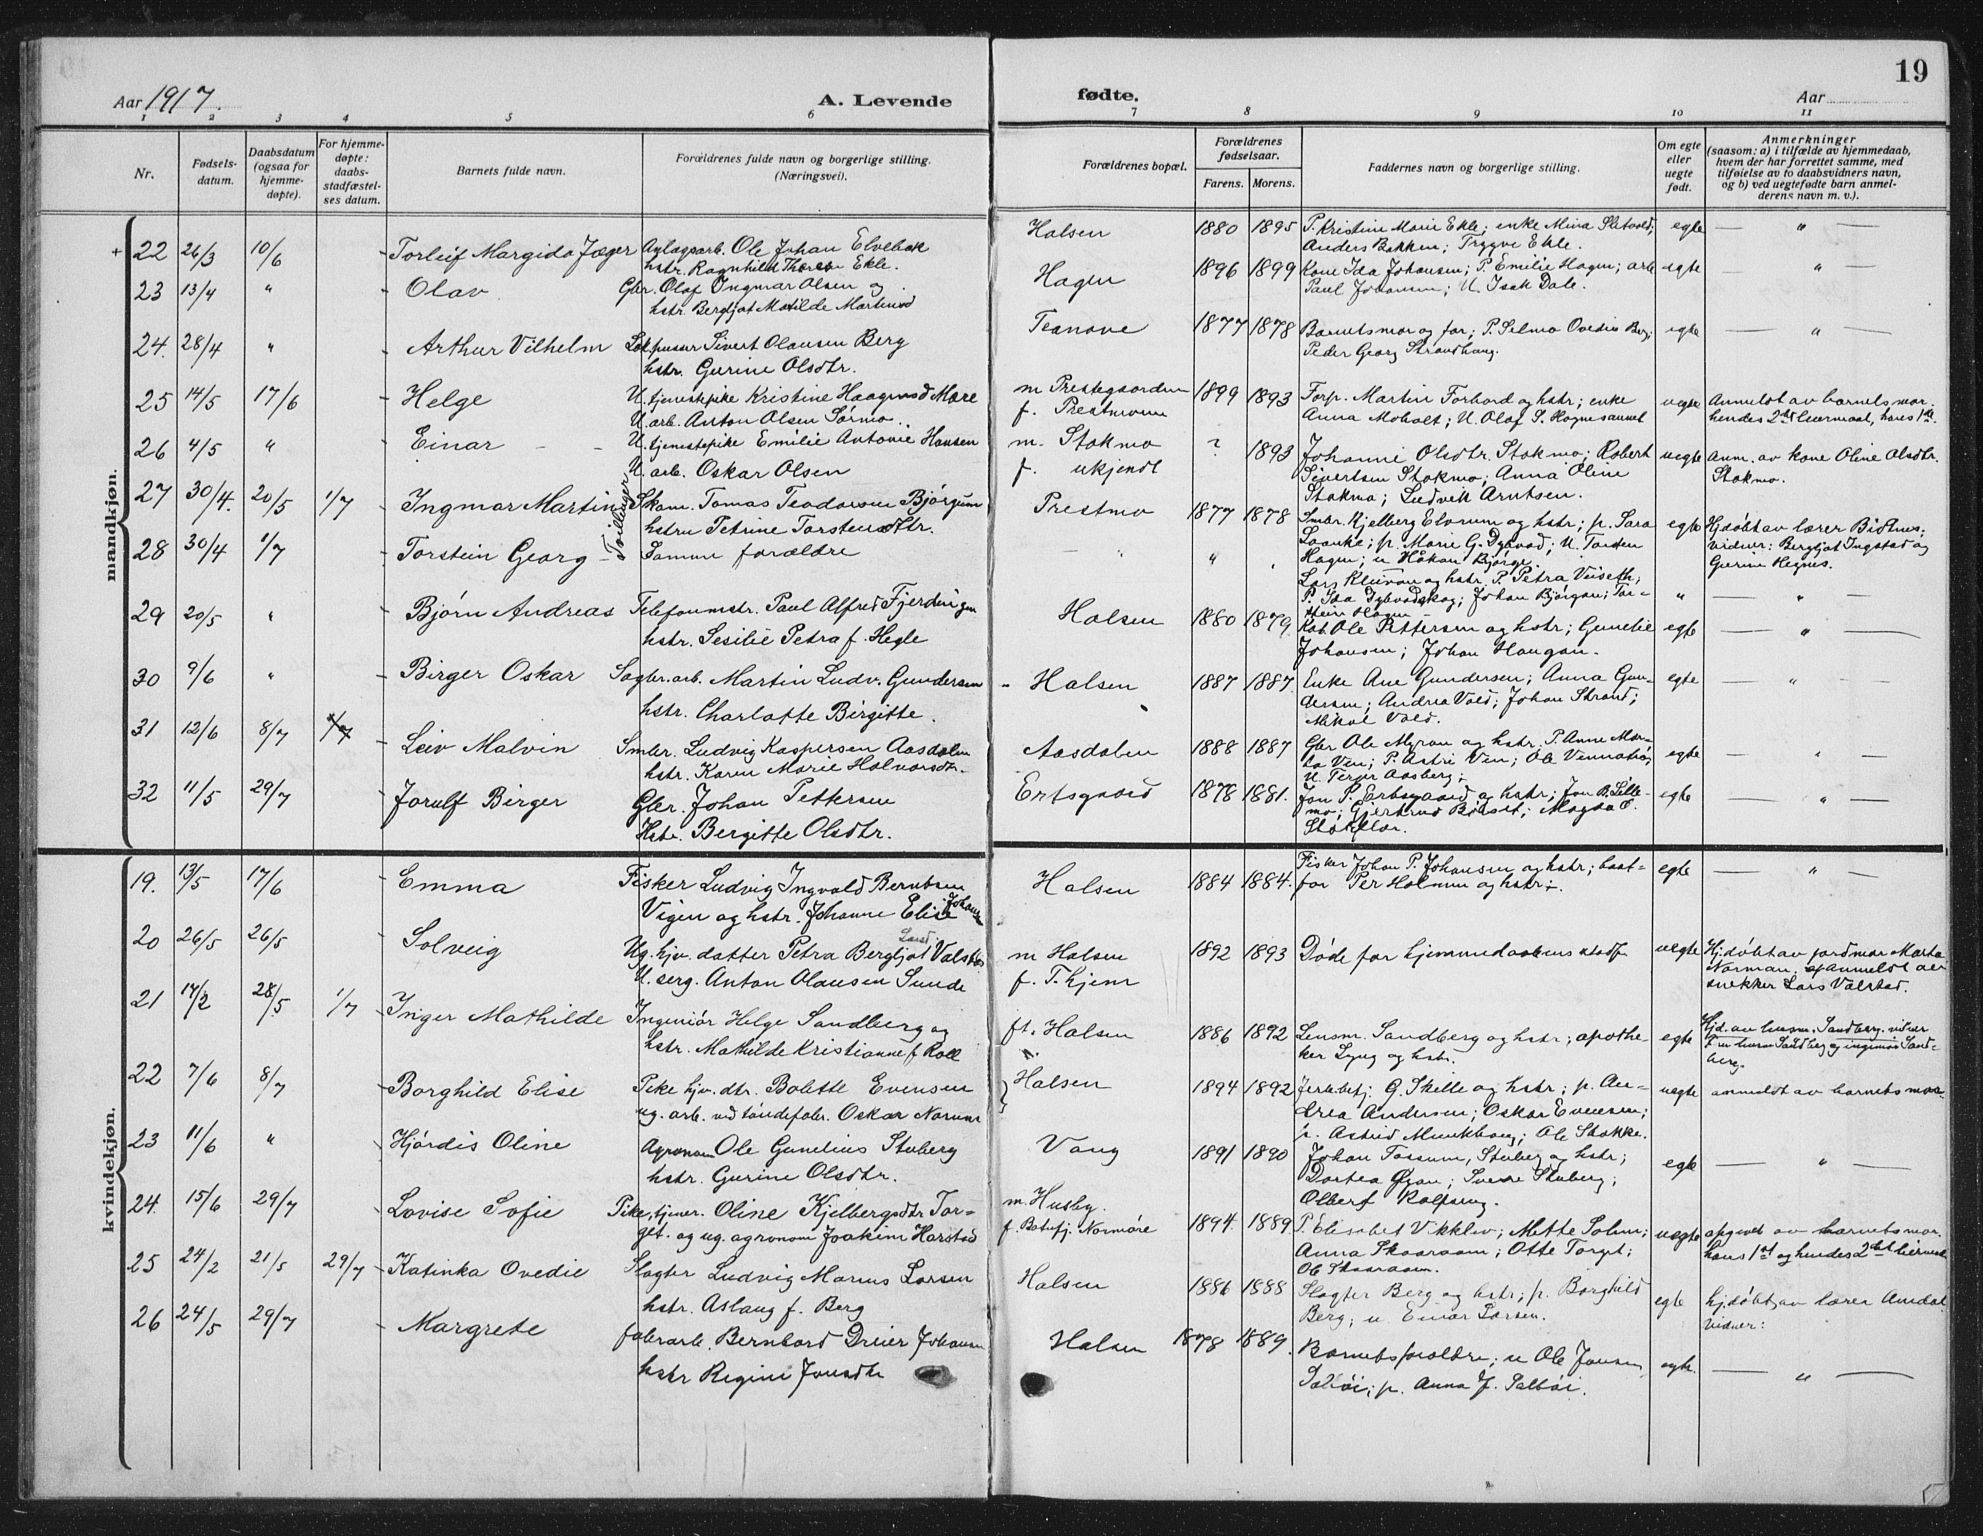 19
Aar 1917. A. Levende fødte. Aar
1 2 3 4 5 6 7 8 9 10 11
Nr.
Fødsels-
datum.
Daabsdatum
(ogsaa for
hjemme-
døpte).
For hjemme-
døpte:
daabs-
stadfæstel-
ses datum.
Barnets fulde navn.
Forældrenes fulde navn og borgerlige stilling.
(Næringsvei).
Forældrenes bopæl.
Forældrenes
fødselsaar.
Farens. Morens.
Faddernes navn og borgerlige stilling.
Om egte
eller
uegte
født.
Anmerkninger
(saasom: a) i tilfælde av hjemmedaab,
hvem der har forrettet samme, med
tilføielse av to daabsvidners navn,
og b) ved uegtefødte barn anmel-
derens navn m. v.).
mandkjøn.
+ 22 26/3 10/6 Torleif Margido Jæger Ole Johan Elvebak
hstr. Ragnhild Ekle.
Halsen 1880 1895 P. Kristine Marie Ekle; enke Mina Sletvold; egte — " —
Anders Bakken; Trygve Ekle.
23 13/4 " Olav Gbr. Olaf Ingmar Olsen og
hstr. Bergljot Matilde
Hagen 1896 1899 Kone Ida Johansen; P. Emilie Hagen; arb egte — " —
Paul Johansen; U. Isak Dale.
24. 28/4 " Arthur Vilhelm Sivert Olausen Berg
hstr. Gurine Olsdtr.
1877 1878 Barnets mor og far; P. Selma Ovedie Berg; egte — " —
Peder Georg
25 14/5 17/6 Helge U. tjenestepike Kristine Haagensd Mære
U. arb. Anton Olsen Sørmo
m Prestegaarden 1899 1893 Forp. Martin Forbord og hstr; enke uegte Anmeldt av barnets mor.
f. Prestmoen Anna Moholt; U. Olaf S. hendes 2det leiermaal, hans 1ste.
26 4/5 " Einar - - U. tjenestepike Emilie Antonie Hansen
U. arb. Oskar Olsen
m. Stokmo ? 1893 Johanne Olsdtr. Stokmo; Robert uegte Anm. av kone Oline Olsdtr.
f. ukjendt Sivertsen Stokmo; Anna Oline Stokmo.
Stokmo; Ludvik Arntsen.
27 30/4. 20/5 1/7 Ingmar Martin Tvillinger Skom. Tomas Teodorsen Bjørgum
hstru Petrine Torstensdtr.
Prestmo 1877 1878 Smbr. Kjelberg Elvrum og hstr; p. Sara egte Hjdøbt av lærer
p. Marie G. Dybvad; U. Torsten vidner: Bergljot Ingstad og
Hagen; u Håkon Bjørge. Gurine Hegnes.
28 30/4 1/7 Torstein Georg - Samme forældre
— " " Lars og hstr. P. Petra
P. Ida Johan Bjørgan; Tor- " — " —
stein Hagen
29 20/5 " Bjørn Andreas Telefonmstr. Paul Alfred Fjerdingen
hstr. Sesilie Petra f. Hegle
Halsen 1880 1879. Ole Pettersen og hstr; Gunelie egte — " —
Johansen; Johan Haugan.
30 9/6 " Birger Oskar Sagbr. arb. Martin Ludv. Gundersen
hstr. Charlotte Birgitte.
Halsen 1887 1887 Enke Ane Gundersen; Anna Gun- egte — " —
dersen; Andrea Vold; Johan Strand;
Mikal Vold.
31 12/6 8/7 1/7 Leiv Malvin Smbr. Ludvig Kaspersen Aasdalen
hstr. Karen Marie Halvorsdtr.
Aasdalen 1888 1887 Gbr Ole Myran og hstr. P. Anne Mar- egte "
ta Ven; P. Astri Ven; Ole
U. Aasberg;
32 11/5 29/7 Jorulf Birger Gbr. Johan Pettersen
Hstr. Bergitte Olsdtr.
Ertsgaard 1878 1881. Jon P. Ertsgaard og hstr; Jon B. egte — " —
mo; Gjertrud Magda O.
kvindekjøn.
19. 13/5 17/6 Emma Fisker Ludvig Ingvald Berntsen
Vigen og hstr. Johanne Elise
Halsen 1884 1884. Fisker Johan P. Johansen og hstr; baat- egte — " —
før Per Holmen og hstr;
20 26/5 26/5 Solveig Ug. hjv. datter Petra Bergljot Larsd. Valstad
U. serg. Anton Olausen Sunde
m Halsen 1892 1893 Døde før hjemmedaabens stadf uegte Hj.døbt av jordmor Marta
f. T.hjem Norman. anmeldt av
snekker Lars Valstad.
21 14/2 28/5 1/7 Inger Mathilde Ingeniør Helge Sandberg og
hstr. Mathilde Kristianne f Roll
ft. Halsen 1886 1892 Lensm. Sandberg og hstr; apothe- egte Hjd. av lensm. Sandberg. vidner
ker Lyng og hstr. Sandberg og ingeniør Sand-
berg
22 7/6 8/7 Borghild Elise Pike hjv. dtr. Bolette Evensen
ug. arb. ved tøndefabr. Oskar
Halsen 1894 1892 G. Skelle og hstr; p. An- uegte anmeldt av barnets mor.
drea Andersen; Oskar Evensen;
p. Astrid Munkhaug; Ole Stokke.
23 11/6 " Hjørdis Oline Agronom Ole Gunelius Stuberg
hstr. Gurine Olsdtr.
Vang 1891 1890 Johan Fossum, Stuberg og hstr; egte — " —
Dortea Øyan; Sverre Stuberg;
Olberf Rolfseng.
24. 15/6 29/7 Lovise Sofie Pike, tjener. Oline Kjelbergsdtr Tor-
get. og ug. agronom Joakim Harstad
m. Husby. 1894. 1889 P. Elisabet Vikklev; Mette Solem; uegte opgivet av barnets mor.
f. Nordmøre Anna Skaaraam; Otto Torget; hans 1st og hendes 2det
Ole Skaaraam.
25 24/2 21/5 29/7 Katinka Ovedie Slagter Ludvig Marius Larsen
hstr. Aslaug f. Berg
Halsen 1886 1888 Slagter Berg og hstr; p. Borghild egte hj.døbt av lærer Amdal
Berg; u. Einar Larsen. vidner:
26 24/5 29/7 Margrete fabr.arb. Bernhard Dreier Johansen
hstr Regine
Halsen 1878 1889. Barnets forældre; u Ole Jensen egte. — " —
p. Anna J.